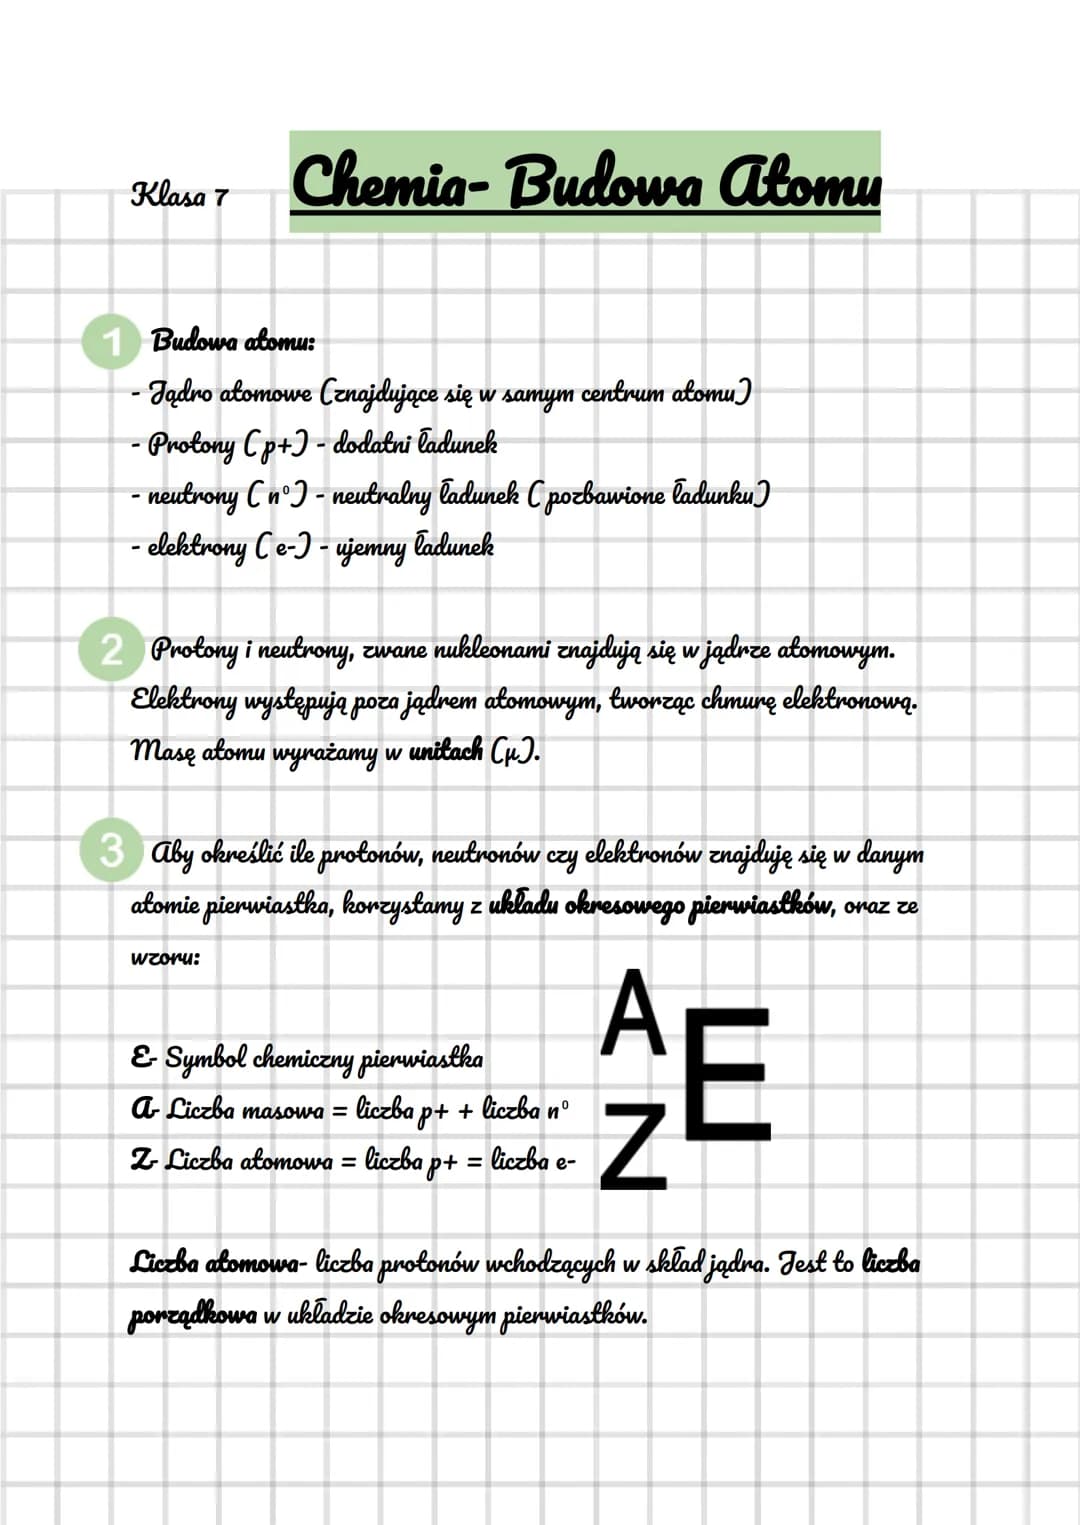 Klasa 7
Chemia- Budowa Atomu
1 Budowa atomu:
- Jądro atomowe (znajdujące się w samym centrum atomu)
- Protony (p+) - dodatni ładunek
- neutrony (n°) - neutralny ładunek (pozbawione ładunku)
- elektrony (e-) - ujemny ładunek
2 Protony i neutrony, zwane nukleonami znajdują się w jądrze atomowym.
Elektrony występują poza jądrem atomowym, tworząc chmurę elektronową.
Masę atomu wyrażamy w unitach (μ).
3 Aby określić ile protonów, neutronów czy elektronów znajduję się w danym
atomie pierwiastka, korzystamy z układu okresowego pierwiastków, oraz ze
wzoru:
E- Symbol chemiczny pierwiastka
A- Liczba masowa = liczba p+ + liczba n°
Z- Liczba atomowa = liczba p+ = liczba e-
A
E
Z
Liczba atomowa- liczba protonów wchodzących w skład jądra. Jest to liczba
porządkowa w układzie okresowym pierwiastków.